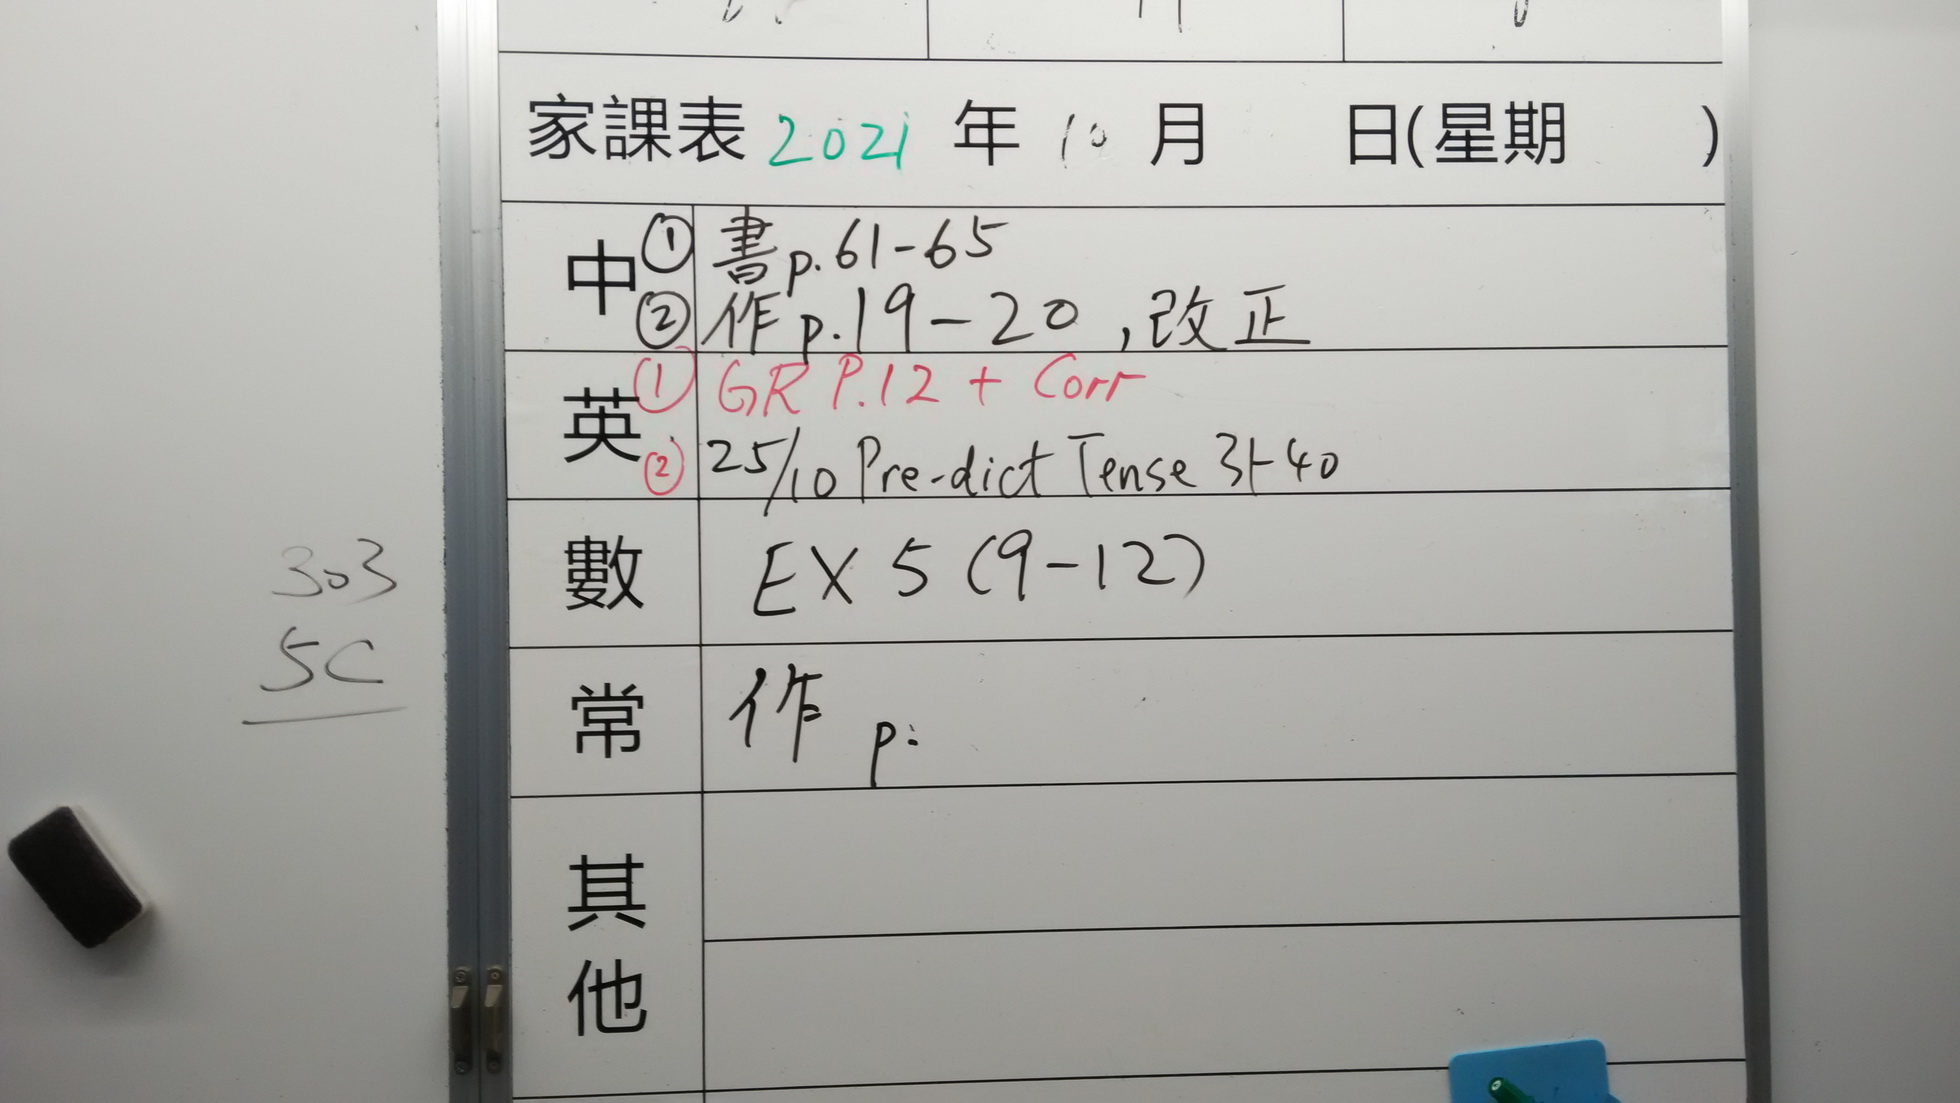 家課表 2021 年 10 月 日(星期 )
中 ① 書 p.61-65
② 作 p.19-20 , 改正
英 ① GR P.12 + Corr
② 25/10 Pre-dict Tense 31-40
數 EX 5 (9-12)
常 作 p.
其他
303
5C